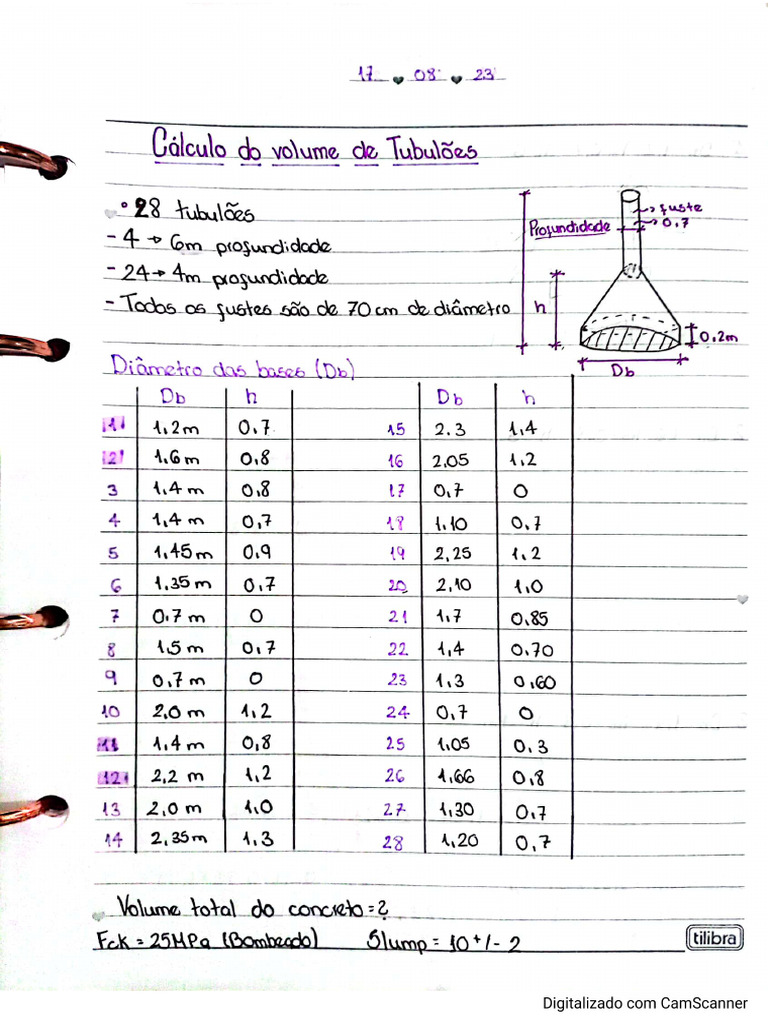 17 08 23
Cálculo do volume de Tubulões
28 tubulões
- 4 → 6m profundidade
- 24 → 4m profundidade
- Todos os fustes são de 70 cm de diâmetro
Profundidade
fuste
0,7
h
0,2m
Db
Diâmetro das bases (Db)
Db h Db h
1 1,2m 0,7 15 2.3 1,4
2 1,6m 0,8 16 2,05 1,2
3 1,4 m 0,8 17 0,7 0
4 1,4 m 0,7 18 1,10 0,7
5 1,45m 0,9 19 2,25 1,2
6 1,35m 0,7 20 2,10 1,0
7 0,7 m 0 21 1,7 0,85
8 1,5m 0,7 22 1,4 0,70
9 0,7 m 0 23 1,3 0,60
10 2,0 m 1,2 24 0,7 0
11 1,4 m 0,8 25 1,05 0,3
12 2,2 m 1,2 26 1,66 0,8
13 2,0 m 1,0 27 1,30 0,7
14 2,35m 1,3 28 1,20 0,7
Volume total do concreto = ?
Fck = 25MPa (Bombeado) Slump = 10 +/- 2
tilibra
Digitalizado com CamScanner